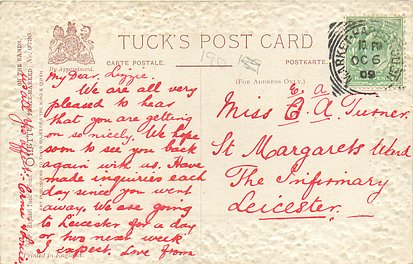 TUCK'S POST CARD
CARTE POSTALE.
POSTKARTE.
By Appointment.
(FOR ADDRESS ONLY.)
190
My Dear Lizzie.
We are all very
pleased to hear
that you are getting
on so nicely. We hope
soon to see you back
again with us. Have
made inquiries each
day since you went
away. We are going
to Leicester for a day
or two next week
I expect. Love from
E A
Miss E. A Turner.
St Margarets Ward
The Infirmary
Leicester.
MARKET
OC 6
09
Printed in England.